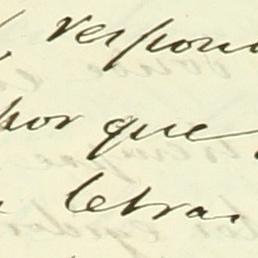 respon
por que
letra